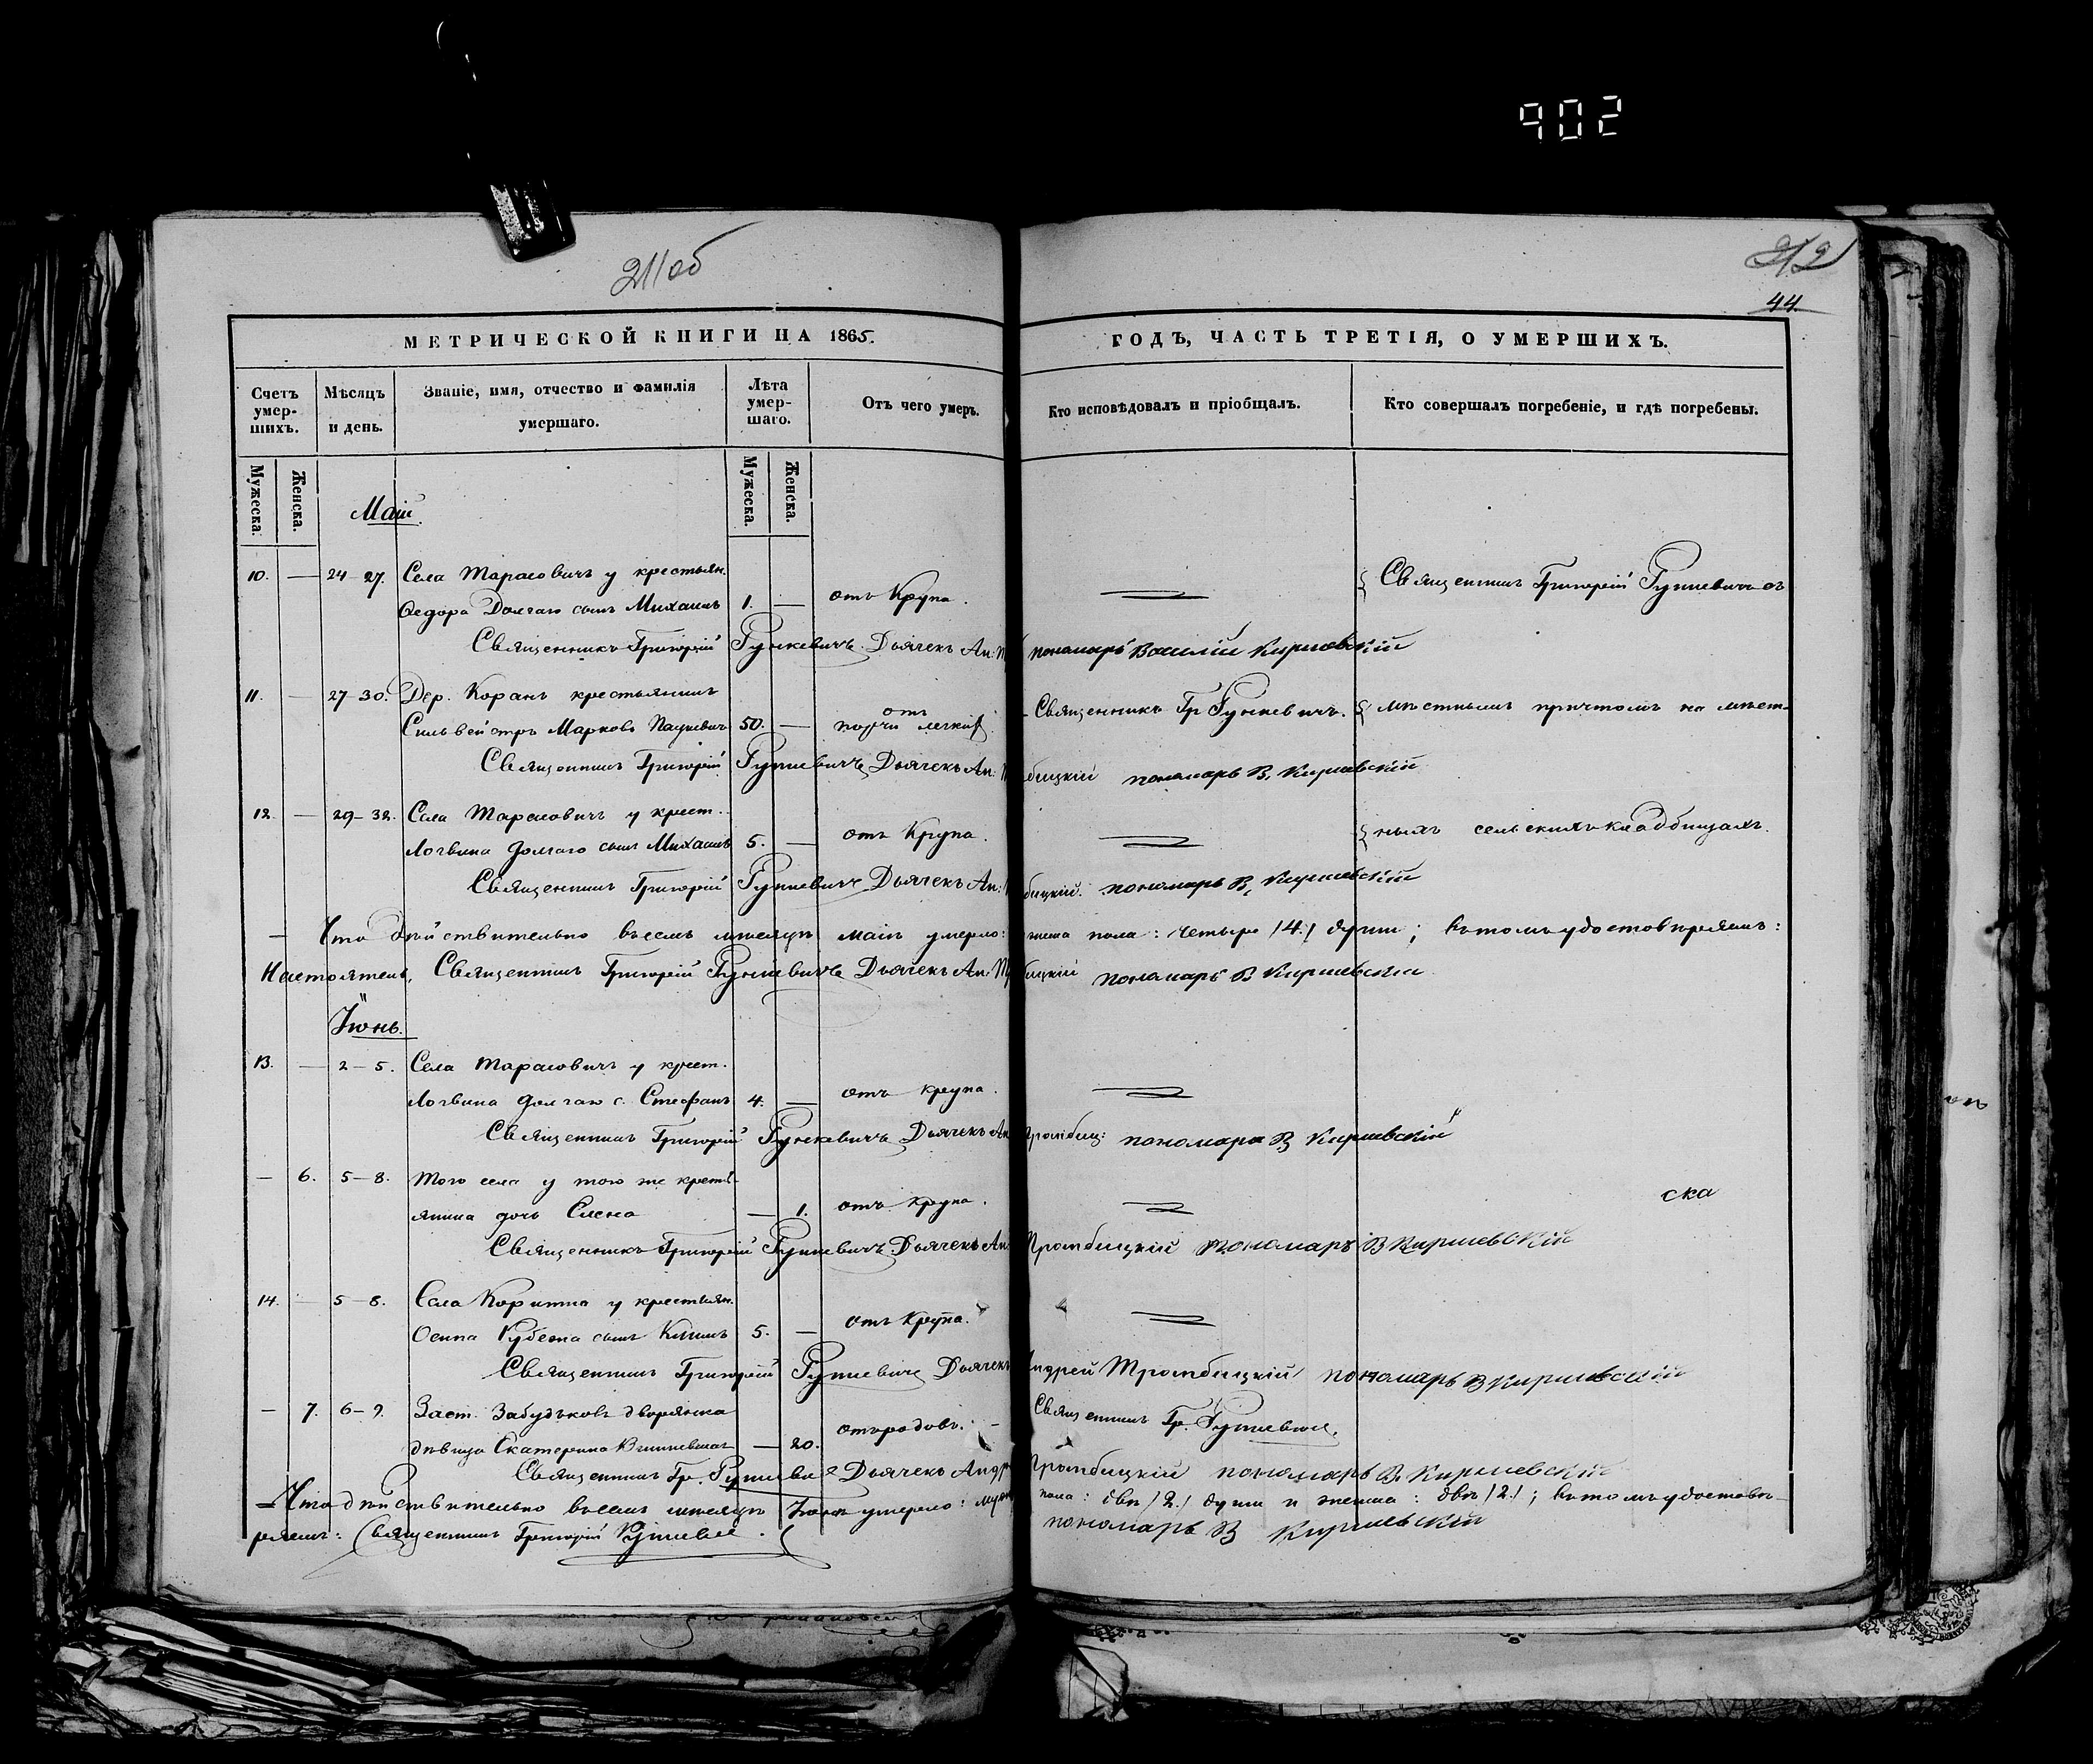 902
211об
212
44.
МЕТРИЧЕСКОЙ КНИГИ НА 1865. ГОДЪ, ЧАСТЬ ТРЕТІЯ, О УМЕРШИХЪ.
Счетъ умер-шихъ.
Мѣсяцъ и день.
Званіе, имя, отчество и фамилія умершаго.
Лѣта умер-шаго.
Отъ чего умеръ.
Кто исповѣдовалъ и пріобщалъ.
Кто совершалъ погребеніе, и гдѣ погребены.
Мужеска.
Женска.
Мужеска.
Женска.
Маій.
10. — 24–27. Села Тарасовичъ у крестьян.
Ѳедора Долгаго сынъ Михаилъ 1. — отъ Крупа. Священникъ Григорій
Священникъ Григорій Рункевичъ Дьячекъ Ан: пономарь Василій Киршевскій
11. — 27–30. Дер. Коранъ крестьянинъ
Сильвейстръ Марковъ 50. — отъ порчи легкихъ. Священникъ Гр Рункевичъ. мѣстнымъ причтомъ на мѣст-
Священникъ Григорій Рункевичъ Дьячекъ Ан: бицкій пономарь В. Киршевскій
12. — 29–32. Села Тарасовичъ у крест.
Логвина Долгаго сынъ Михаилъ 5. — отъ Крупа. ныхъ сельскихъ кладбищахъ.
Священникъ Григорій Рункевичъ Дьячекъ Ан: бицкій. пономарь В. Киршевскій
— Что дѣйствительно въ семъ мѣсяцѣ маіѣ умерло: жеска пола: четыре /4./ души; въ томъ удостовѣряемъ:
Настоятель, Священникъ Григорій Рункевичъ Дьячекъ Ан: бицкій пономарь В Киршевскій
Іюнь.
13. — 2–5. Села Тарасовичъ у крест.
Логвина Долгаго с. Стефанъ 4. — отъ крупа.
Священникъ Григорій Рункевичъ Дьячекъ Ан тромбиц: пономарь В Киршевскій
— 6. 5–8. Того села у того же кресть-
янина дочь Елена — 1. отъ крупа. ска
Священникъ Григорій Рункевичъ. Дьячекъ Ан: Тромбицкій пономарь В Киршевскій
14. — 5–8. Села Коритна у крестьян.
Осипа сынъ 5. — отъ Крупа.
Священникъ Григорій Рункевичъ Дьячекъ Андрей Тромбицкій пономарь В Киршевскій
— 7. 6–9. Заст. Забудьковъ дворянка
дѣвица Екатерина — 20. отъ родовъ. — Священникъ Гр. Рункевичъ.
Священникъ Гр. Рункевичъ Дьячекъ Андр Тромбицкій пономарь В. Киршевскій
— Что дѣйствительно въ семъ мѣсяцѣ Іюнѣ умерло: муж пола: двѣ /2./ души и женска: двѣ /2./; въ томъ удостовѣ-
ряемъ: Священникъ Григорій Рункевичъ. пономарь В Киршевскій